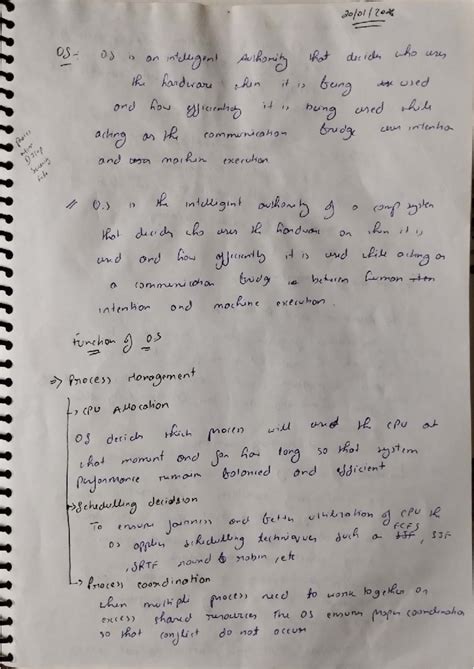 20/01/2026
OS:- OS is an intelligent Authority that decides who uses
the hardware when it is being use used
and how efficiently it is being used while
acting as the communication bridge user intention
and user machine execution.
// O.S is the intelligent authority of a comp system
that decides who uses the hardware on when it is
used and how efficiently it is used while acting as
a communication bridge is between human
intention and machine execution.
Function of OS
=> Process Management
CPU Allocation
OS decides which process will used the CPU at
what moment and for how long so that system
performance remain balanced and efficient
Schedulling decidsion
To ensure fairness and better utilization of CPU the
FCFS
OS applies schedulling techniques such a SJF, SJF
, SRTF round & robin, etc
Process coordination
when multiple process need to work together or
excess shared resources the OS ensures proper coordination
so that conflict do not occur